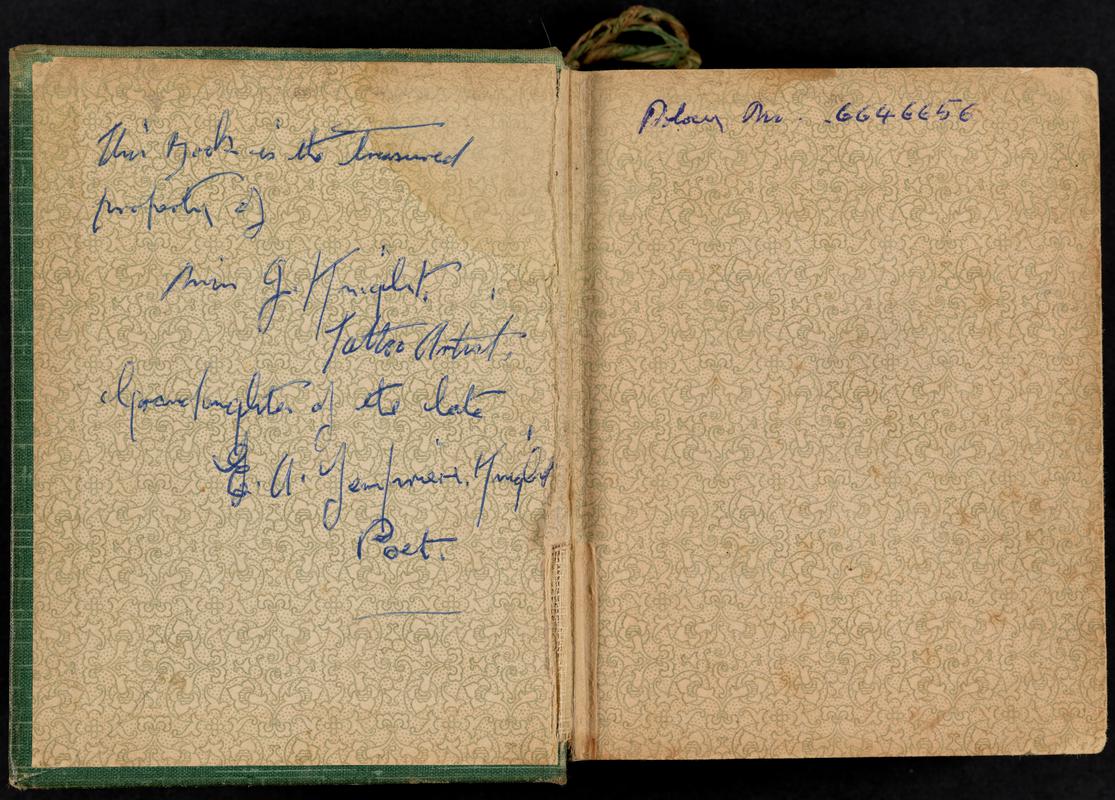 This Book is the treasured
property of
Miss J. Knight.
Tattoo Artist.
Grandaughter of the late
E. A. Tempiuon. Knight
Poet.
No. 6646656